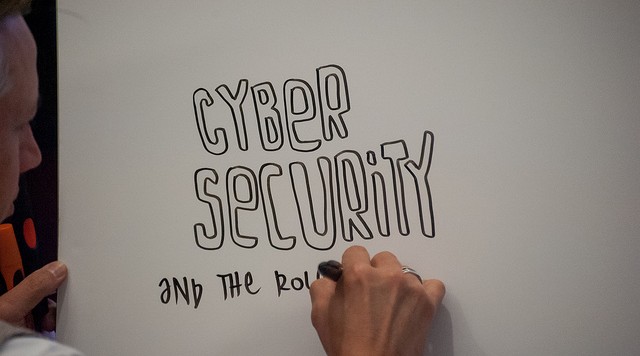 CYBER
SECURITY
AND THE ROL